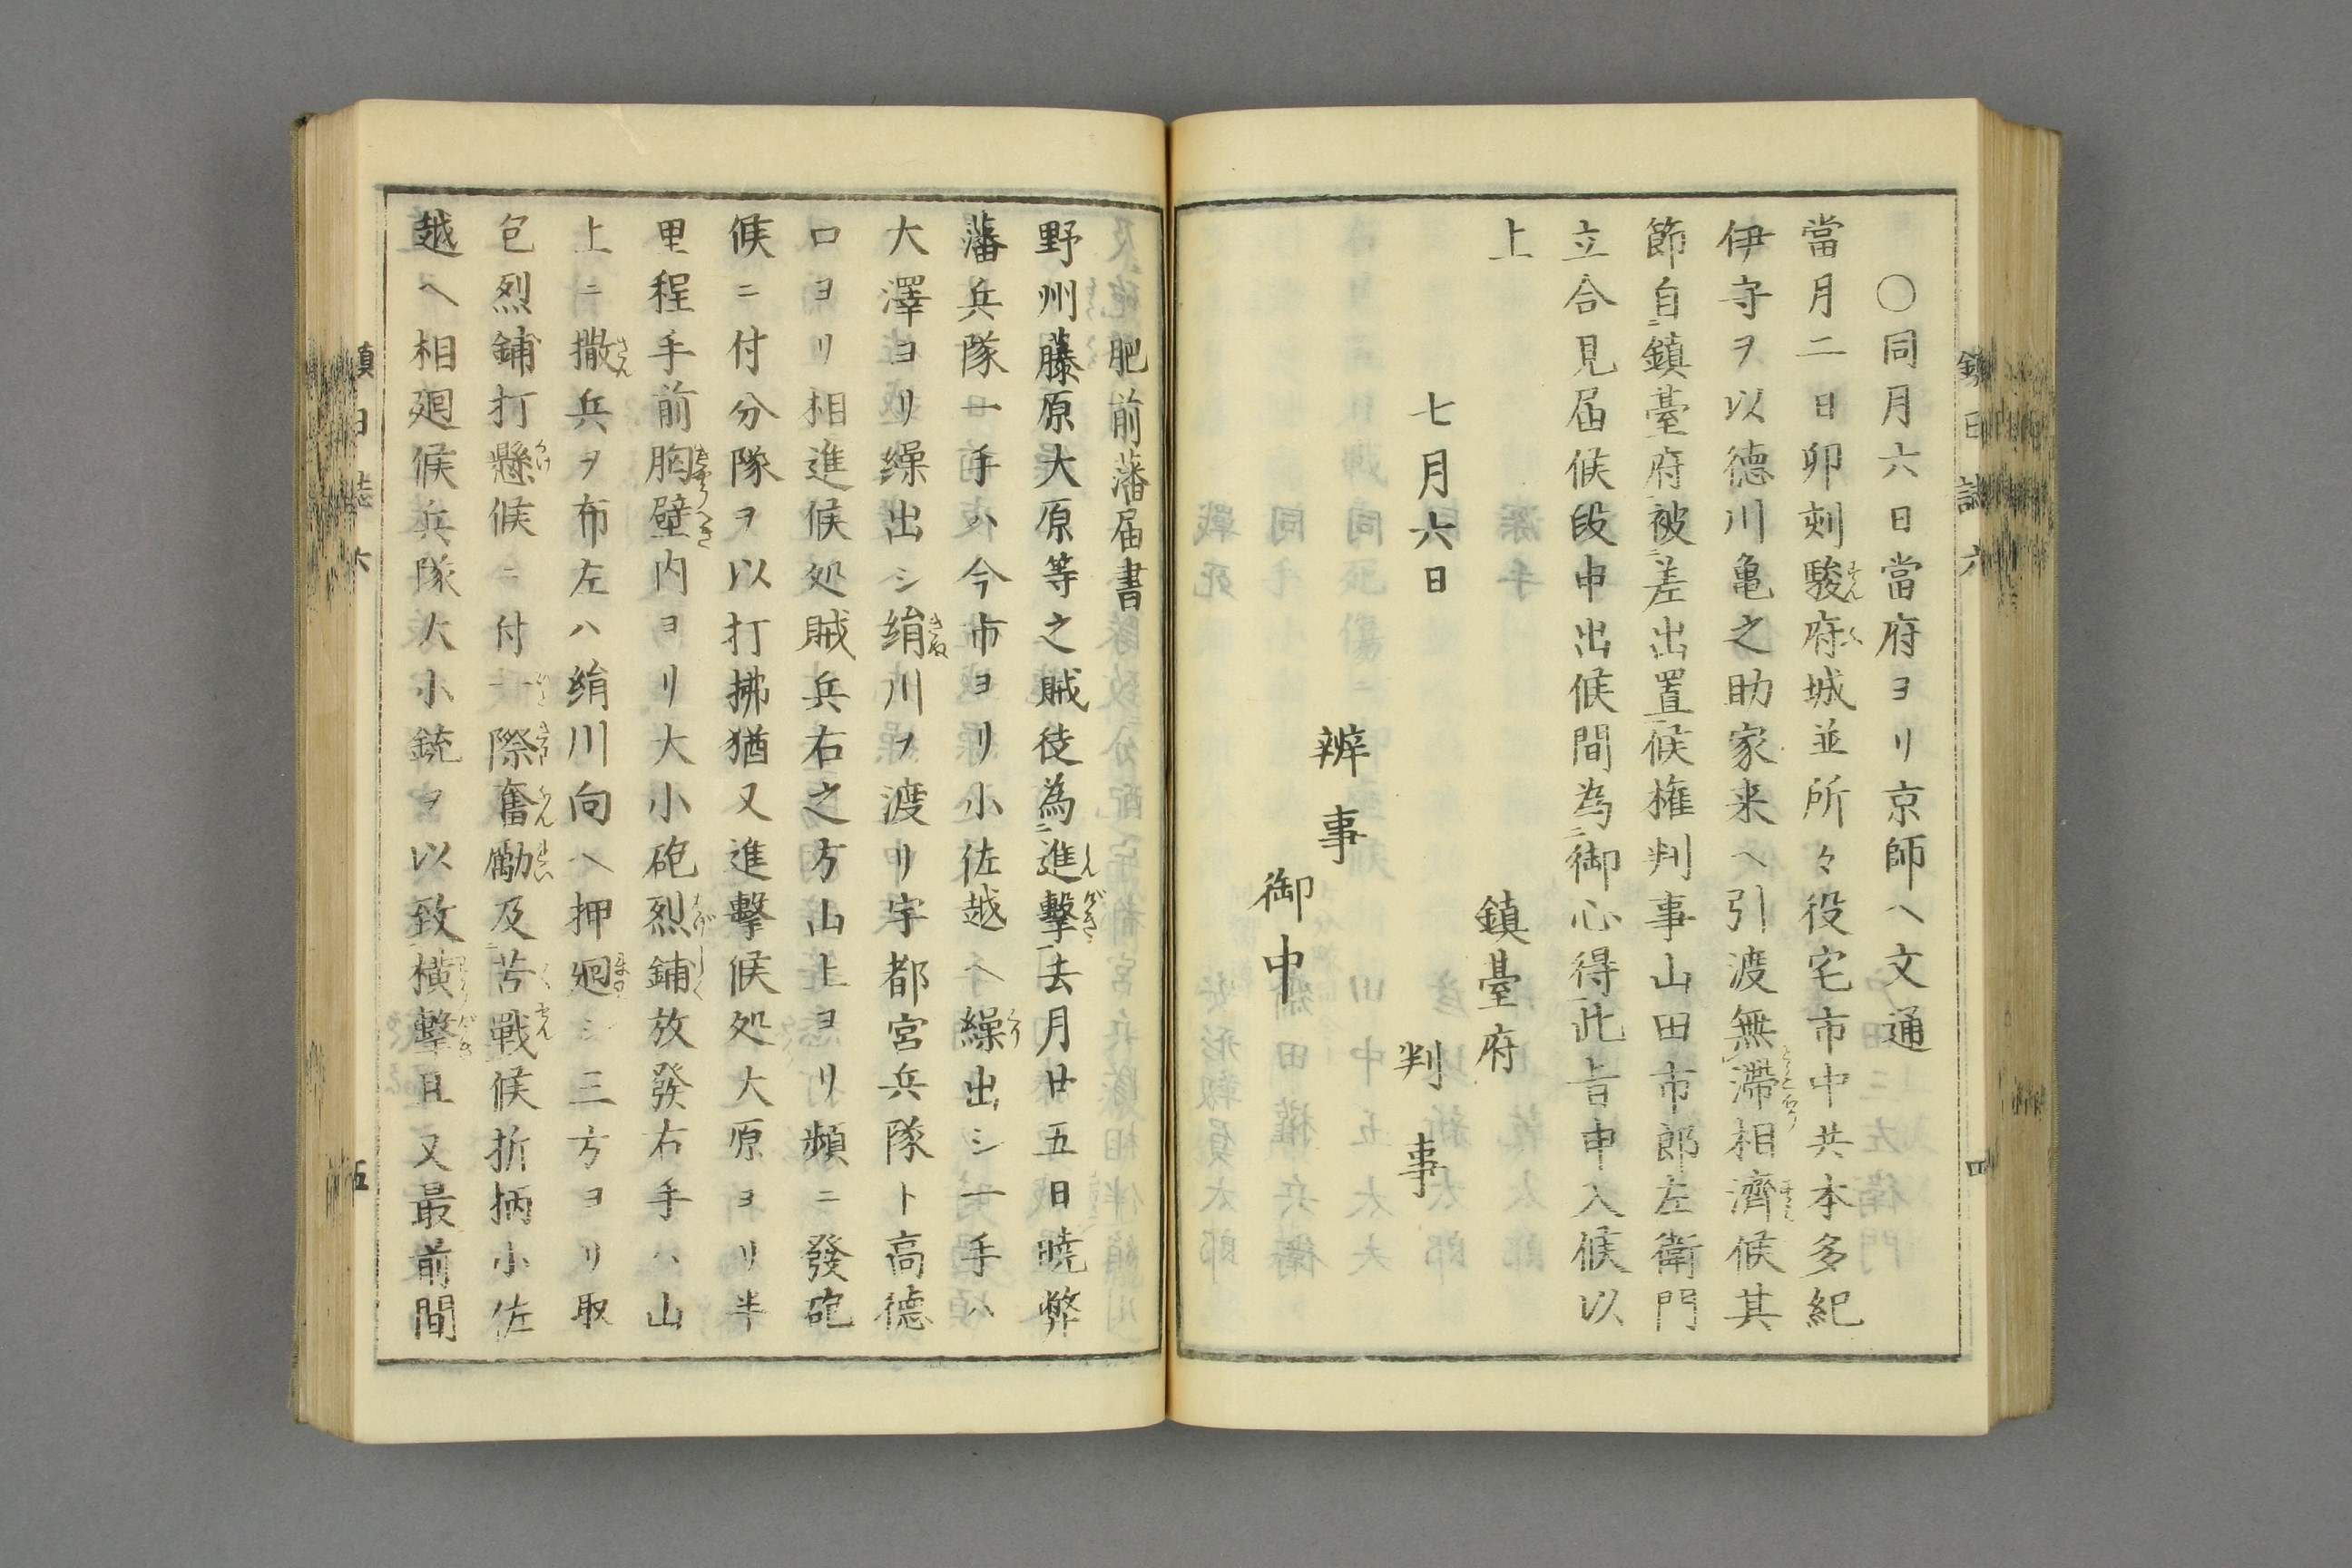 鎮日誌六
四
〇同月六日當府ヨリ京師ヘ文通
當月二日卯刻駿府城並所々役宅市中共本多紀
伊守ヲ以德川亀之助家来ヘ引渡無滞相濟候其
節自鎮臺府被差出置候権判事山田市郎左衛門
立合見届候段申出候間為御心得此旨申入候以
上
鎮臺府
判事
七月六日
辨事
御中
肥前藩届書
野州藤原大原等之賊徒為進擊去月廿五日曉弊
藩兵隊一手ハ今市ヨリ小佐越ヘ繰出シ一手ハ
大澤ヨリ繰出シ絹川ヲ渡リ宇都宮兵隊ト高德
口ヨリ相進候処賊兵右之方山上ヨリ頻ニ發砲
候ニ付分隊ヲ以打拂猶又進擊候処大原ヨリ半
里程手前胸壁内ヨリ大小砲烈鋪放發右手ハ山
上ニ撒兵ヲ布左ハ絹川向ヘ押廻シ三方ヨリ取
包烈鋪打懸候ニ付一際奮勵及苦戰候折柄小佐
越ヘ相廻候兵隊大小銃ヲ以致橫擊且又最前間
鎮日誌六
五